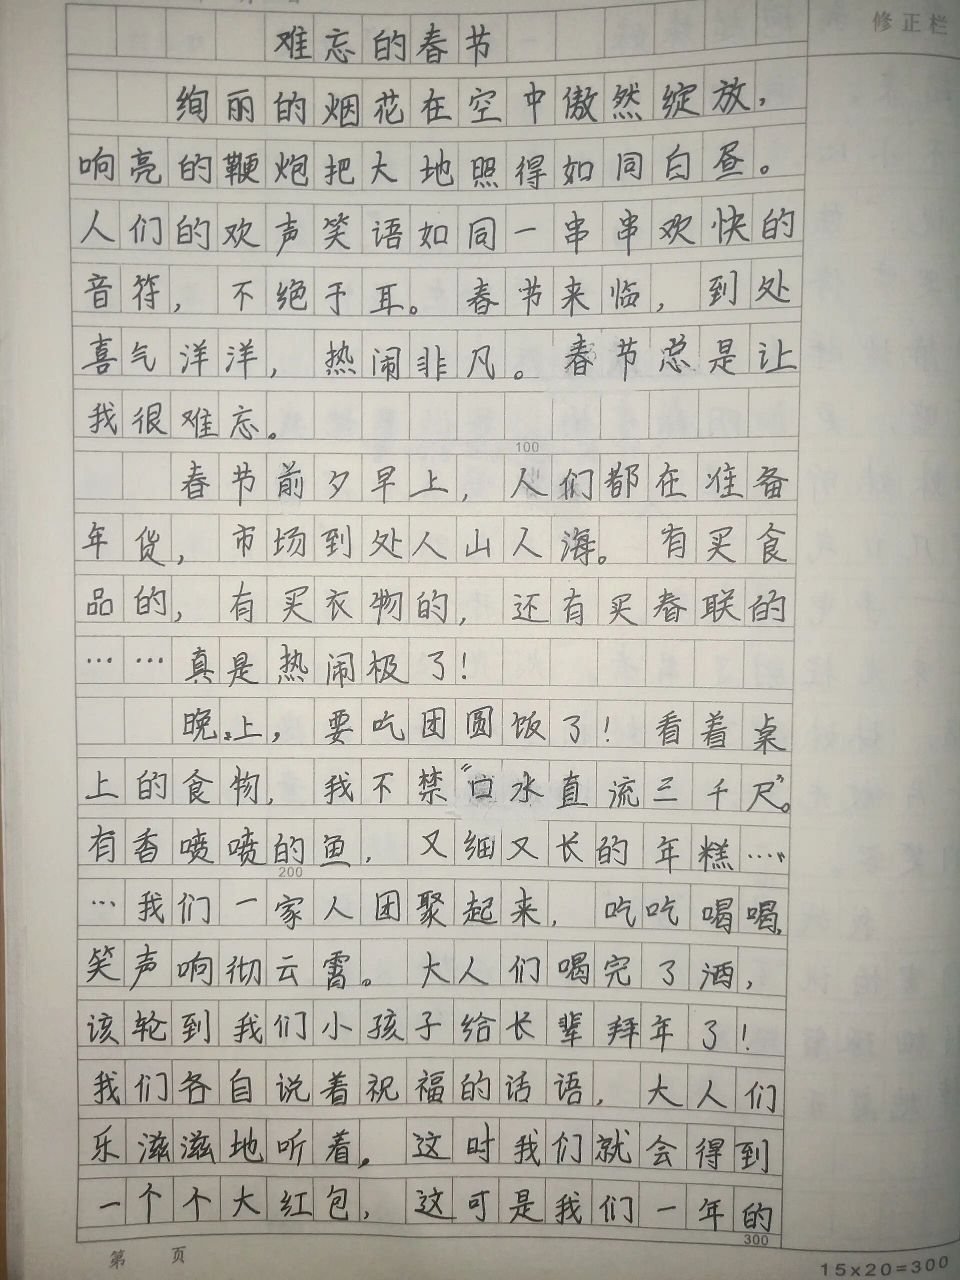 修正栏
难忘的春节
绚丽的烟花在空中傲然绽放，
响亮的鞭炮把大地照得如同白昼。
人们的欢声笑语如同一串串欢快的
音符，不绝于耳。春节来临，到处
喜气洋洋，热闹非凡。春节总是让
我很难忘。
100
春节前夕早上，人们都在准备
年货，市场到处人山人海。有买食
品的，有买衣物的，还有买春联的
……真是热闹极了！
晚上，要吃团圆饭了！看着桌
上的食物，我不禁“口水直流三千尺”。
有香喷喷的鱼，又细又长的年糕……
200
…我们一家人团聚起来，吃吃喝喝，
笑声响彻云霄。大人们喝完了酒，
该轮到我们小孩子给长辈拜年了！
我们各自说着祝福的话语，大人们
乐滋滋地听着。这时我们就会得到
一个个大红包，这可是我们一年的
300
第 页
15×20=300